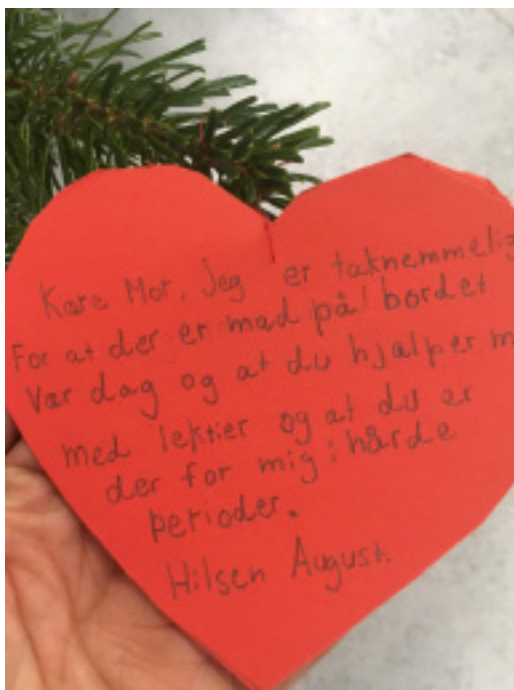 Kære Mor, Jeg er taknemmelig
For at der er mad på bordet
Vær dag og at du hjælper m
med lektier og at du er
der for mig i hårde
perioder.
Hilsen August.